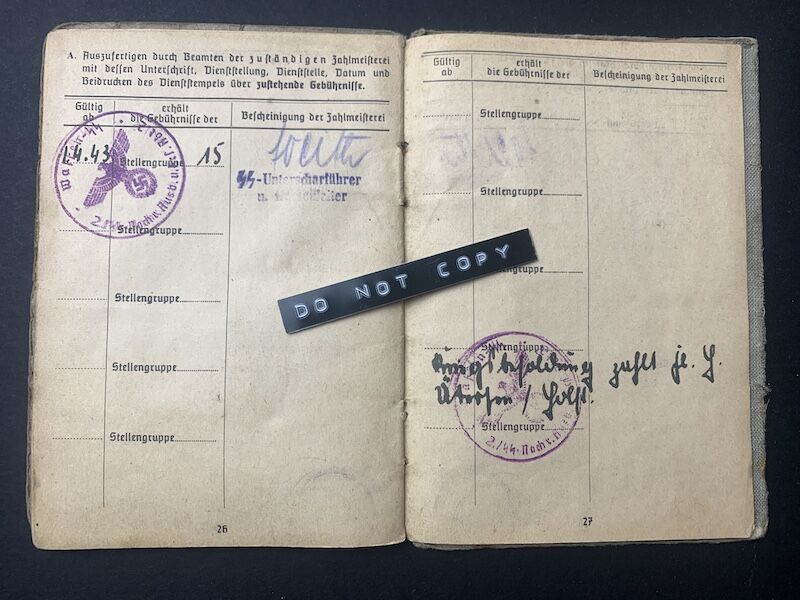 A. Auszufertigen durch Beamten der zuständigen Zahlmeisterei
mit dessen Unterschrift, Dienststellung, Dienststelle, Datum und
Beidrucken des Dienststempels über zustehende Gebührnisse.
Gültig ab
erhält die Gebührnisse der
Bescheinigung der Zahlmeisterei
1.4.43
Stellengruppe 15
Waffen-SS
2./SS-Nachr. Ausb.
SS-Unterscharführer
Stellengruppe
Stellengruppe
Stellengruppe
Stellengruppe
26
DO NOT COPY
Gültig ab
erhält die Gebührnisse der
Bescheinigung der Zahlmeisterei
Stellengruppe
Stellengruppe
Stellengruppe
Stellengruppe
Kriegsbesoldung zahlt
Ütersen / Holst.
Stellengruppe
2./SS-Nachr. Ausb.
27